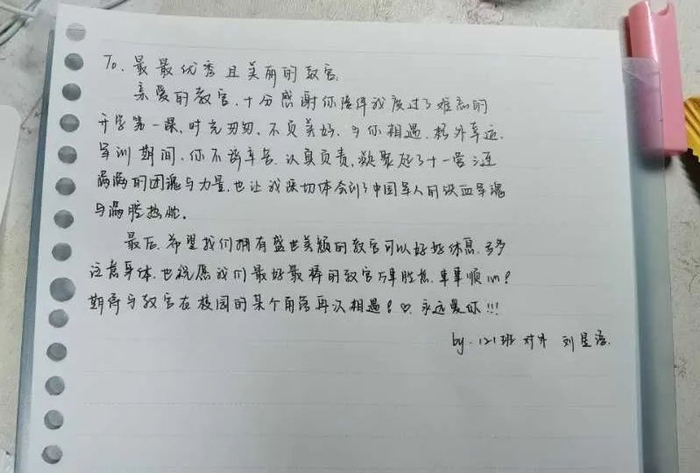 To. 最最优秀且美丽的教官
亲爱的教官,十分感谢你陪伴我度过了难忘的
开学第一课,时光匆匆,不负美好,与你相遇,格外幸运,
军训期间,你不辞辛苦,认真负责,凝聚起了十一营三连
满满的团魂与力量,也让我深切体会到了中国军人的铁血军魂
与满腔热忱。
最后,希望我们拥有盛世美颜的教官可以好好休息,多多
注意身体,也祝愿我们最好最棒的教官万事胜意,事事顺心!
期待与教官在校园的某个角落再次相遇!♡ 永远爱你!!!
by. 121班 对外 刘星